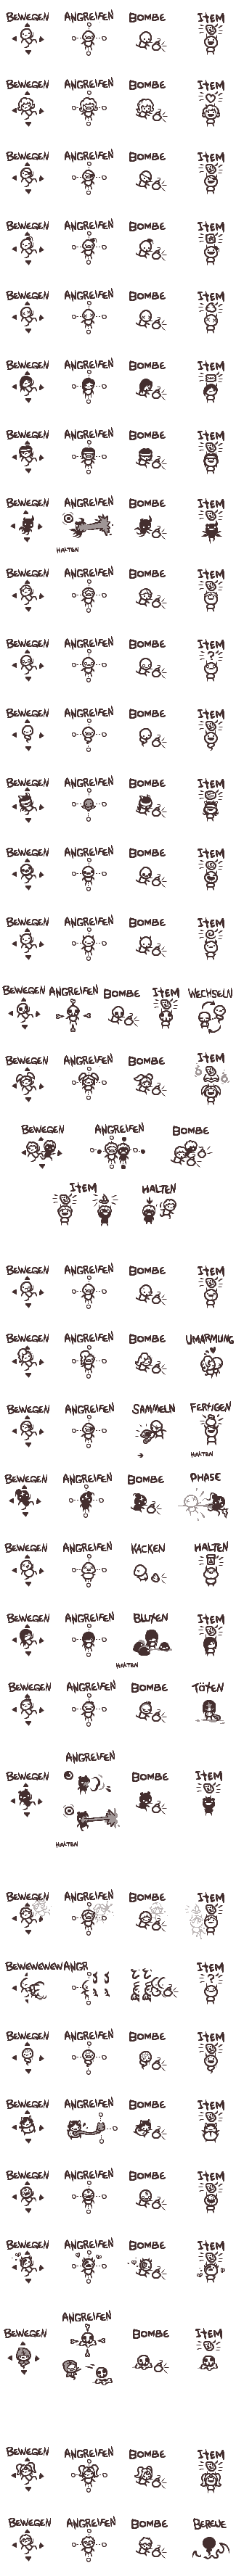 BEWEGEN ANGREIFEN BOMBE ITEM
BEWEGEN ANGREIFEN BOMBE ITEM
BEWEGEN ANGREIFEN BOMBE ITEM
BEWEGEN ANGREIFEN BOMBE ITEM
BEWEGEN ANGREIFEN BOMBE ITEM
BEWEGEN ANGREIFEN BOMBE ITEM
BEWEGEN ANGREIFEN BOMBE ITEM
BEWEGEN ANGREIFEN BOMBE ITEM
HALTEN
BEWEGEN ANGREIFEN BOMBE ITEM
BEWEGEN ANGREIFEN BOMBE ITEM
?
BEWEGEN ANGREIFEN BOMBE ITEM
BEWEGEN ANGREIFEN BOMBE ITEM
BEWEGEN ANGREIFEN BOMBE ITEM
BEWEGEN ANGREIFEN BOMBE ITEM
BEWEGEN ANGREIFEN BOMBE ITEM WECHSELN
BEWEGEN ANGREIFEN BOMBE ITEM
BEWEGEN ANGREIFEN BOMBE
ITEM HALTEN
BEWEGEN ANGREIFEN BOMBE ITEM
BEWEGEN ANGREIFEN BOMBE UMARMUNG
BEWEGEN ANGREIFEN SAMMELN FERTIGEN
HALTEN
BEWEGEN ANGREIFEN BOMBE PHASE
BEWEGEN ANGREIFEN KACKEN HALTEN
BEWEGEN ANGREIFEN BLUTEN ITEM
HALTEN
BEWEGEN ANGREIFEN BOMBE TÖTEN
ANGREIFEN
BEWEGEN BOMBE ITEM
HALTEN
BEWEGEN ANGREIFEN BOMBE ITEM
BEWEWEWEWANGR ITEM
?
BEWEGEN ANGREIFEN BOMBE ITEM
BEWEGEN ANGREIFEN BOMBE ITEM
BEWEGEN ANGREIFEN BOMBE ITEM
BEWEGEN ANGREIFEN BOMBE ITEM
ANGREIFEN
BEWEGEN BOMBE ITEM
BEWEGEN ANGREIFEN BOMBE ITEM
BEWEGEN ANGREIFEN BOMBE BERGUE